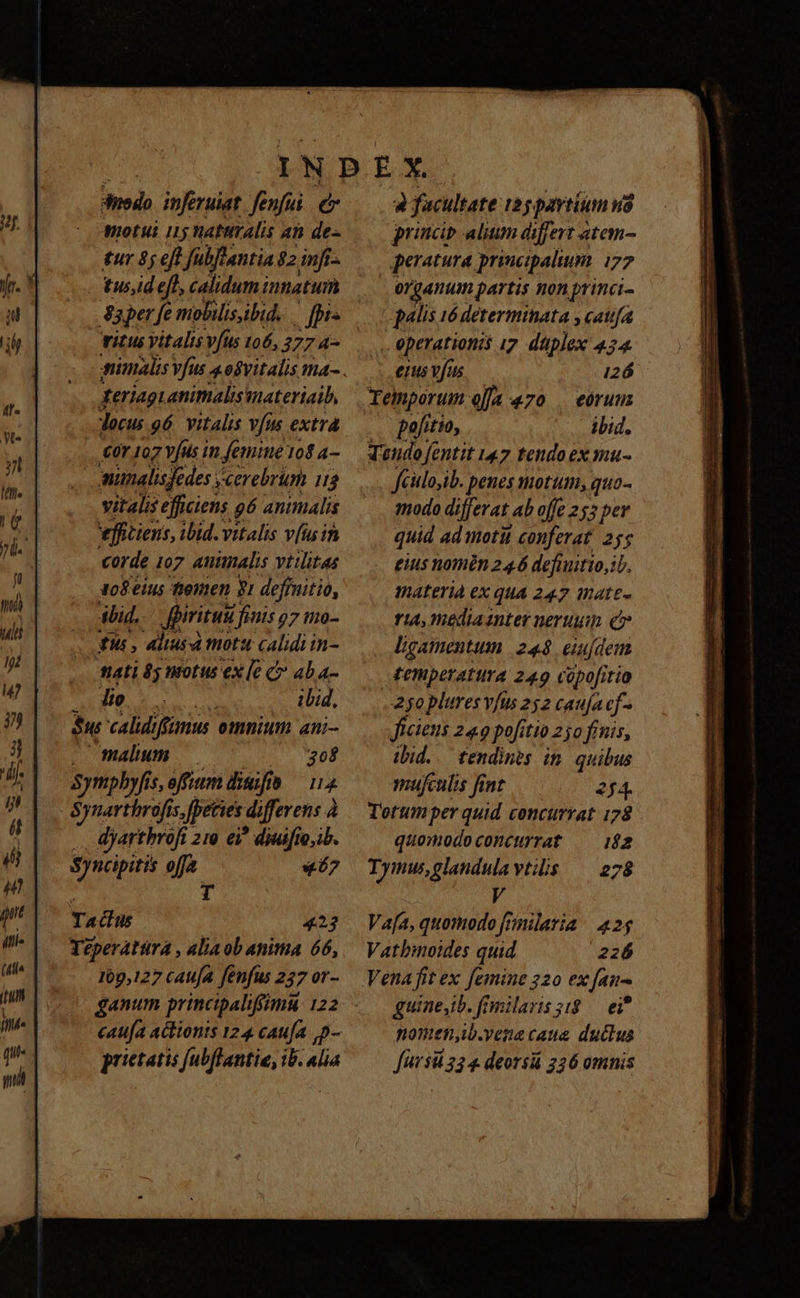 INDEX.
modo inseruiat sensui &
motui 115 naturalis an de-
tur 85 est substantia 82 insi-
tus, id est, calidum innatum
83 per se mobilis, ibid. spi-
ritus vitalis vsus 106, 377 a-
nimalis vsus 408 vitalis ma-
teria 91 animalis materia ib.
locus 96 vitalis vsus extra
cor 107 vsus in semine 108 a-
nimalis sedes, cerebrum 113
vitalis efficiens 96 animalis
efficiens, ibid. vitalis vsus in
corde 107 animalis vtilitas
408 eius nomen 81 definitio,
ibid. spirituũ finis 97 mo-
tus, alius à motu calidi in-
nati 85 motus ex se & ab a-
lio ibid.
Sus calidissimus omnium ani-
malium 308
Symphysis, ossium diuisio 114
Synarthrosis, species differens à
dyarthrosi 210 ei⁹ diuisio, ib.
Syncipitis ossa 467
T
Tactus 423
Tẽperatura, alia ob anima 66,
109, 127 causa sensus 237 or-
ganum principalissimũ 122
causa actionis 124 causa ꝓ-
prietatis substantiæ, ib. alia
à facultate 125 partium nõ
princip. alium differt à tem-
peratura principalium 177
organum partis non princi-
palis 16 determinata, causa
operationis 17 duplex 434
eius vsus 126
Temporum ossa 470 eorum
positio, ibid.
Tendo sentit 147 tendo ex mu-
sculo, ib. penes motum, quo-
modo differat ab osse 253 per
quid ad motũ conferat 255
eius nomẽn 246 definitio, ib.
materia ex qua 247 mate-
ria, media inter neruum &
ligamentum 248 eiusdem
temperatura 249 cõpositio
250 plures vsus 252 causa ef-
ficiens 249 positio 250 finis,
ibid. tendines in quibus
musculis sint 254
Totum per quid concurrat 178
quomodo concurrat 182
Tymus, glandula vtilis 278
V
Vasa, quomodo similaria 425
Vathmoides quid 226
Vena fit ex semine 320 ex san-
guine, ib. similaris 318 ei⁹
nomen, ib. venæ cauæ ductus
sursũ 334 deorsũ 336 omnis